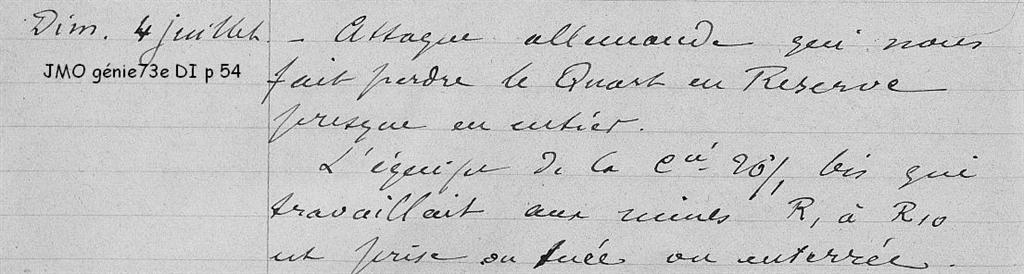 Dim. 4 juillet. - Attaque allemande qui nous
JMO génie73e DI p 54
fait perdre le Quart en Reserve
presque en entier.
L'équipe de la Cie 26/1 bis qui
travaillait aux mines R1 à R10
est prise ou tuée ou enterrée.